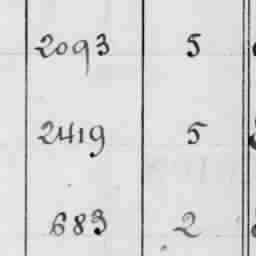 2093 5
2419 5
683 2